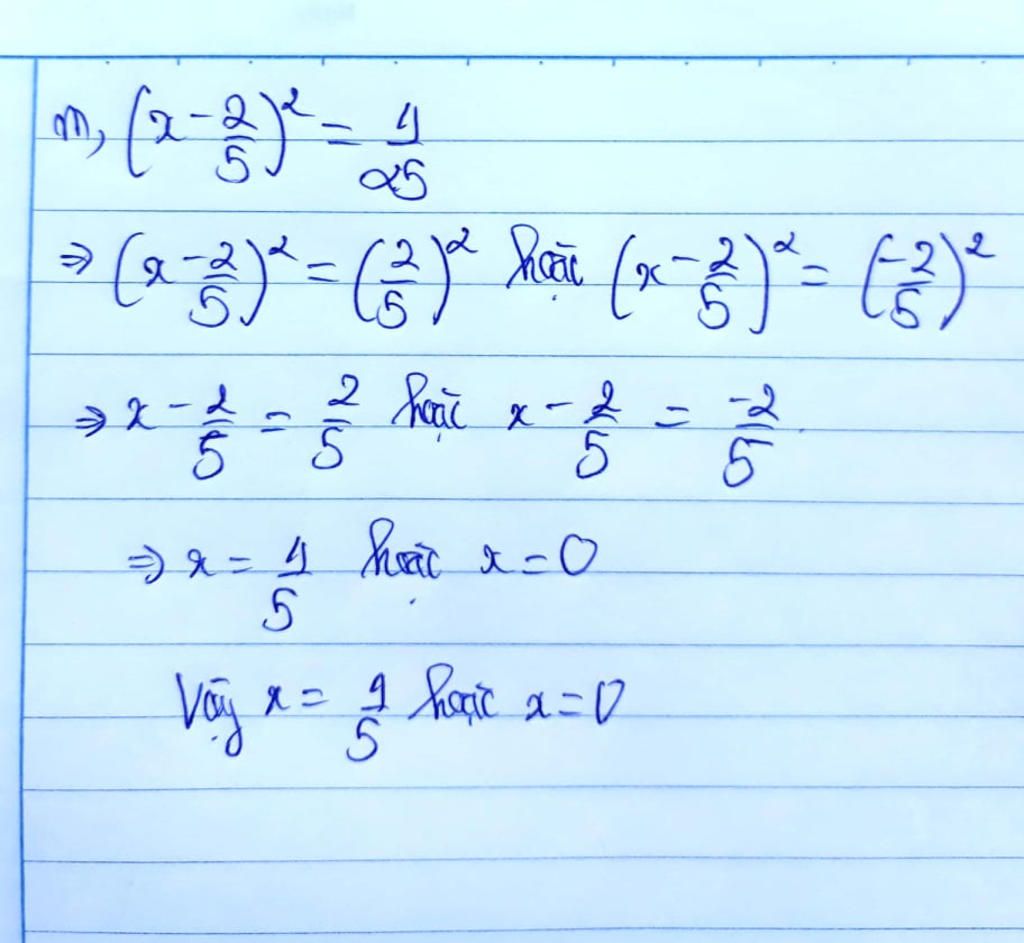 m, (x - 2/5)² = 4/25
⇒ (x - 2/5)² = (2/5)² hoặc (x - 2/5)² = (-2/5)²
⇒ x - 2/5 = 2/5 hoặc x - 2/5 = -2/5
⇒ x = 4/5 hoặc x = 0
Vậy x = 4/5 hoặc x = 0